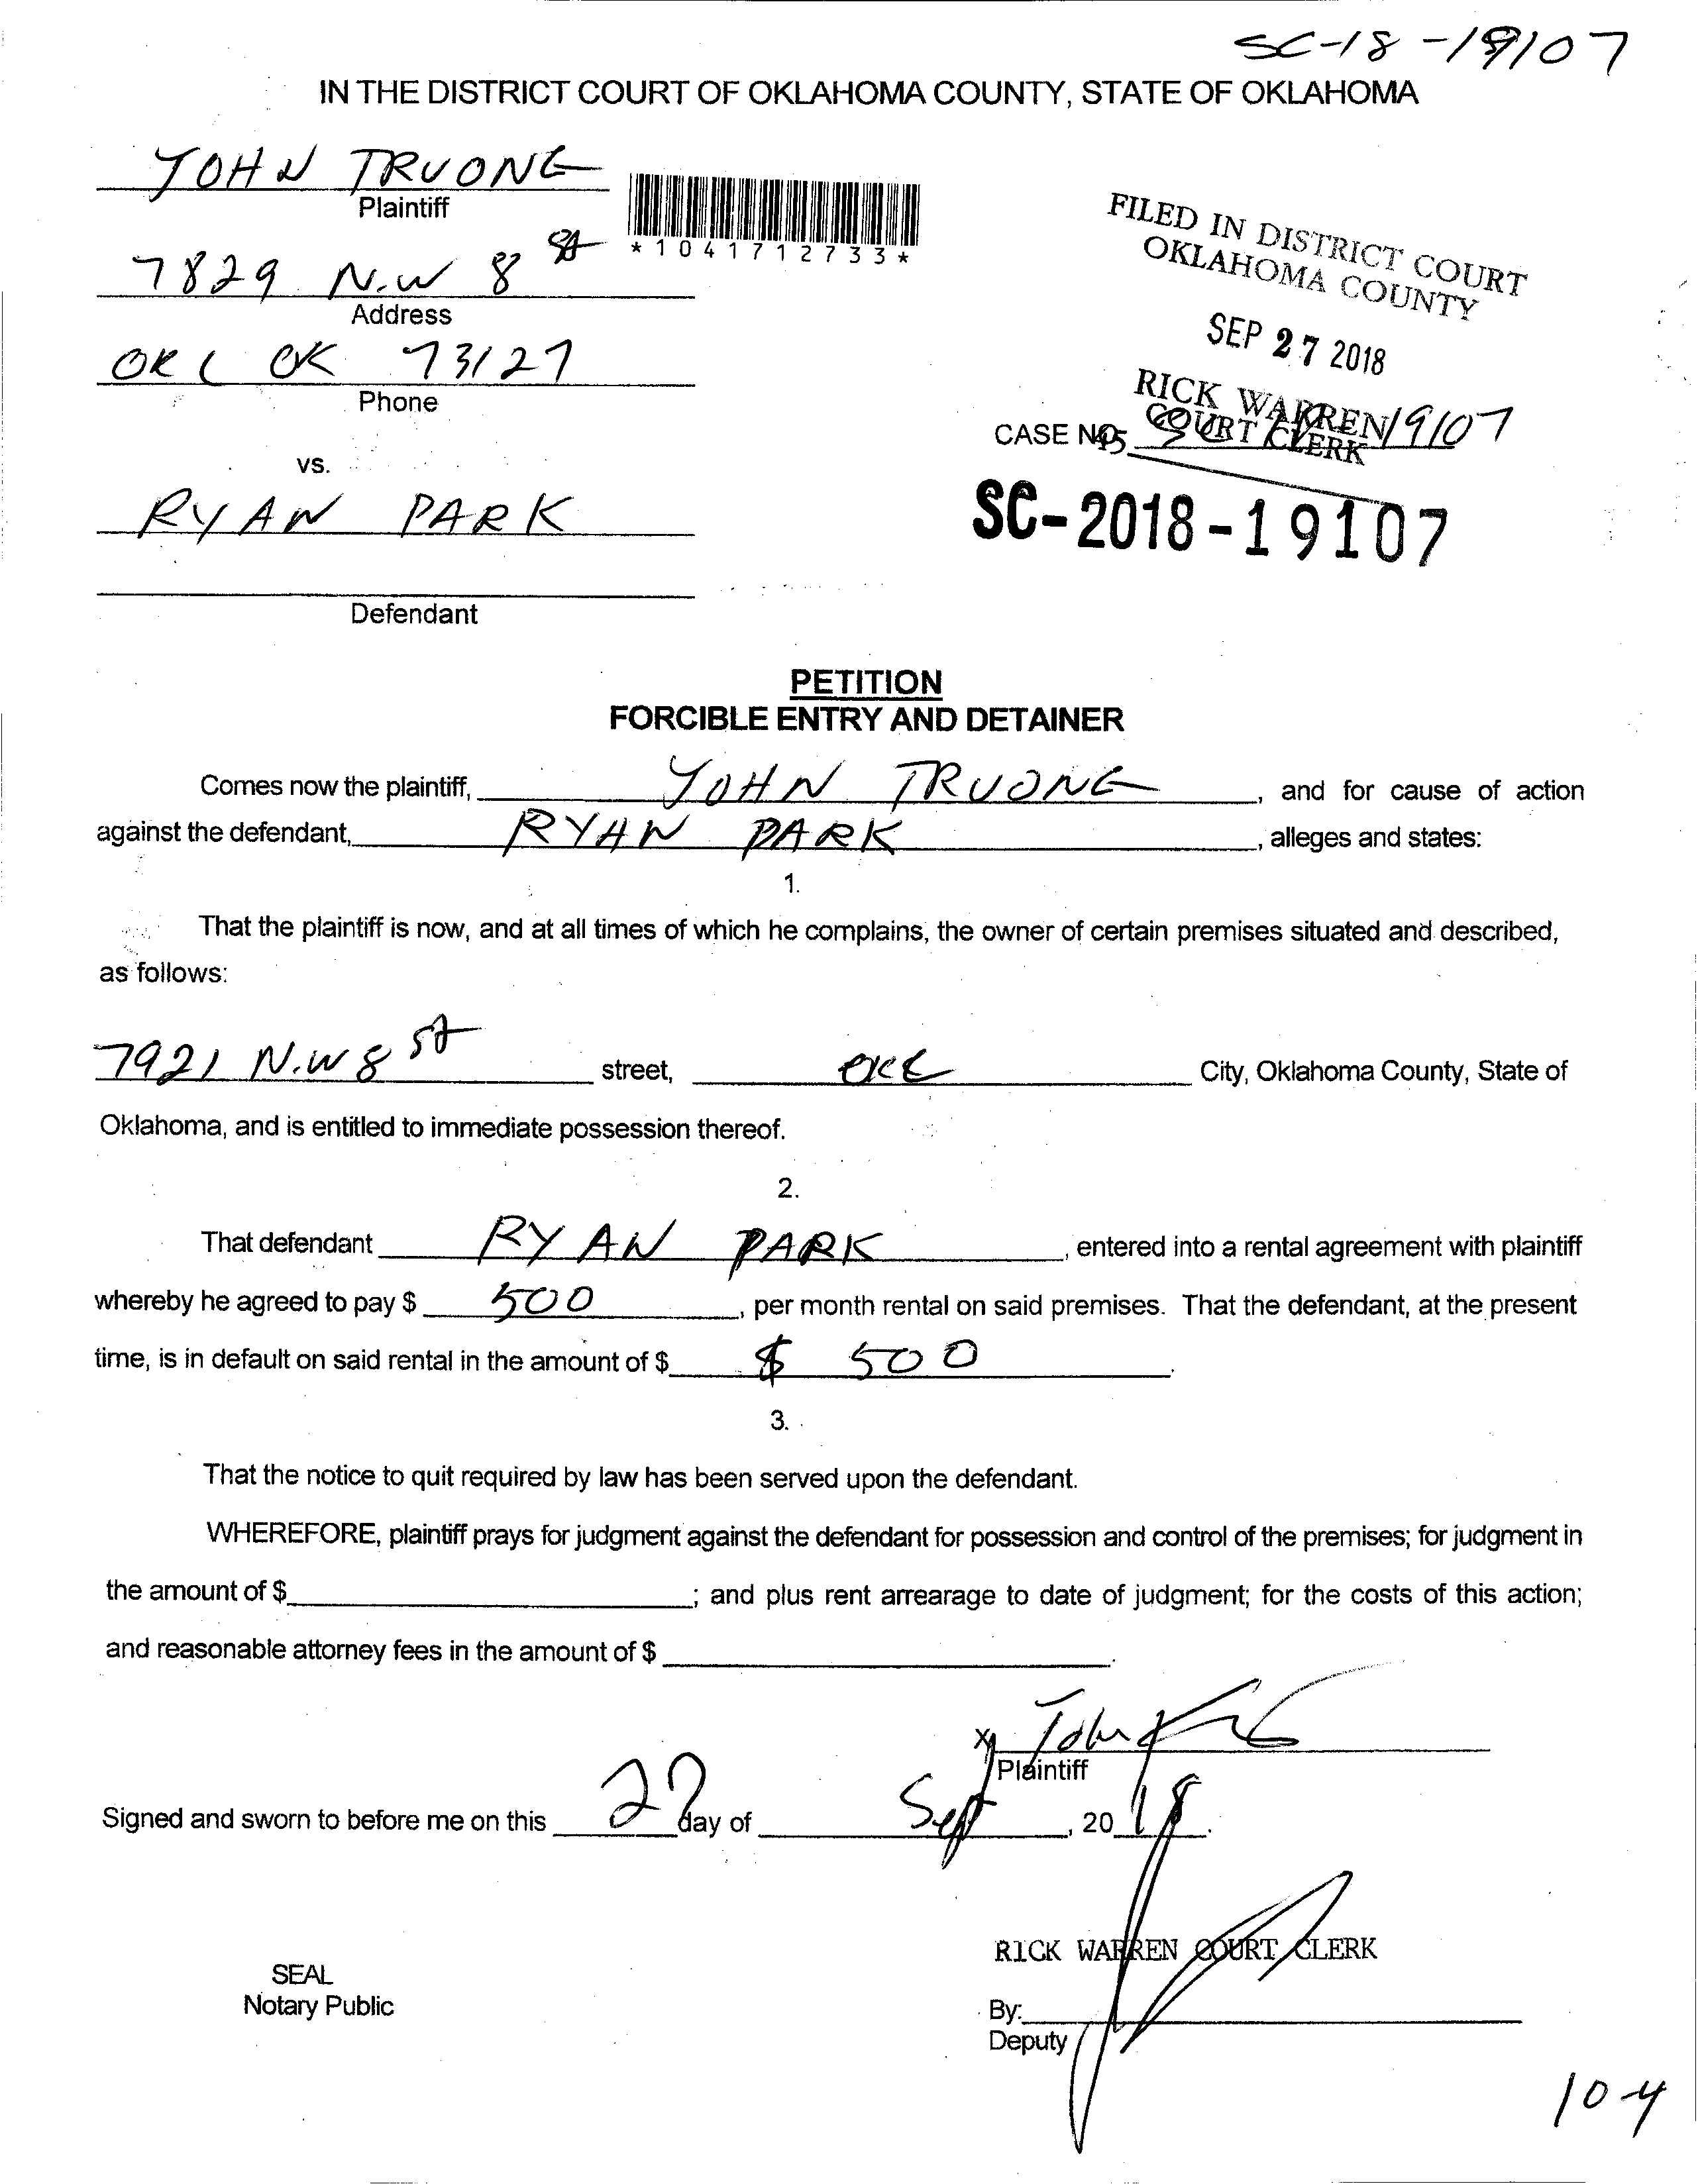 SC-18-19107
IN THE DISTRICT COURT OF OKLAHOMA COUNTY, STATE OF OKLAHOMA
JOHN TRUONG
Plaintiff
*1041712733*
7829 N.W 8 St
Address
FILED IN DISTRICT COURT
OKLAHOMA COUNTY
SEP 27 2018
RICK WARREN
COURT CLERK
OKC OK 73127
Phone
CASE NO. 19107
45
vs.
SC-2018-19107
RYAN PARK
Defendant
PETITION
FORCIBLE ENTRY AND DETAINER
Comes now the plaintiff, JOHN TRUONG, and for cause of action
against the defendant, RYAN PARK, alleges and states:
1.
That the plaintiff is now, and at all times of which he complains, the owner of certain premises situated and described,
as follows:
7921 N.W 8 St street, OKC City, Oklahoma County, State of
Oklahoma, and is entitled to immediate possession thereof.
2.
That defendant RYAN PARK, entered into a rental agreement with plaintiff
whereby he agreed to pay $ 500, per month rental on said premises. That the defendant, at the present
time, is in default on said rental in the amount of $ $ 500.
3.
That the notice to quit required by law has been served upon the defendant.
WHEREFORE, plaintiff prays for judgment against the defendant for possession and control of the premises; for judgment in
the amount of $ ; and plus rent arrearage to date of judgment; for the costs of this action;
and reasonable attorney fees in the amount of $ .
X John
Plaintiff
Signed and sworn to before me on this 27 day of Sept, 20 18.
RICK WARREN COURT CLERK
SEAL
Notary Public
By:
Deputy
10-4